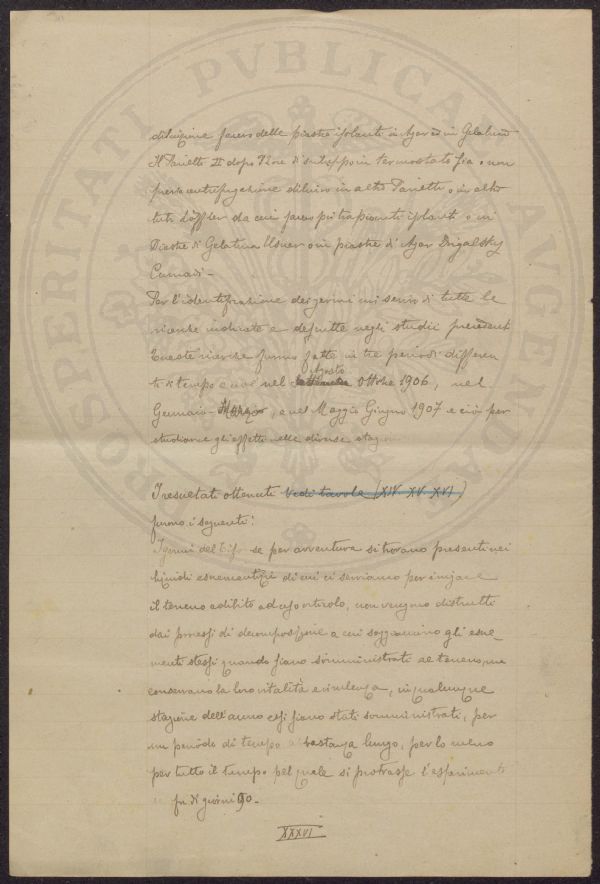 PROSPERITATI PVBLICAE AVGENDAE
diluizione facevo delle piastre isolanti in Agar ed in Gelatina
Il Parietti II dopo 12 ore di sviluppo in termostato fra o non
previa centrifugazione diluivo in altro Parietti o in altro
tubi Löffler da cui facevo poi trapianti isolanti o in
Piastre di Gelatina Elsner o in piastre di Agar Drigalsky
Conradi -
Per l'identificazione dei germi mi servii di tutte le
ricerche indicate e descritte negli studii precedenti
Queste ricerche furono fatte in tre periodi differen
ti di tempo e cioè nel Agosto Ottobre 1906, nel
Gennaio - Marzo, e nel Maggio Giugno 1907 e ciò per
studiarne gli effetti nelle diverse stagioni
I resultati ottenuti vedi tavole (XIV XV XVI)
furono i seguenti:
I germi del Tifo se per avventura si trovano presenti nei
liquidi escrementizi di cui ci serviamo per
il terreno adibito ad uso orticolo, non vengono distrutti
dai processi di decomposizione a cui soggiacciono gli escre_
menti stessi quando siano somministrati al terreno, ma
conservano la loro vitalità e virulenza, in qualunque
stagione dell'anno essi siano stati somministrati, per
un periodo di tempo abbastanza lungo, per lo meno
per tutto il tempo pel quale si protrasse l'esperimento
fu di giorni 90.-
XXXVI